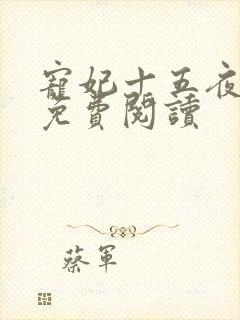 寵妃十五夜
免費閱讀
蔡軍